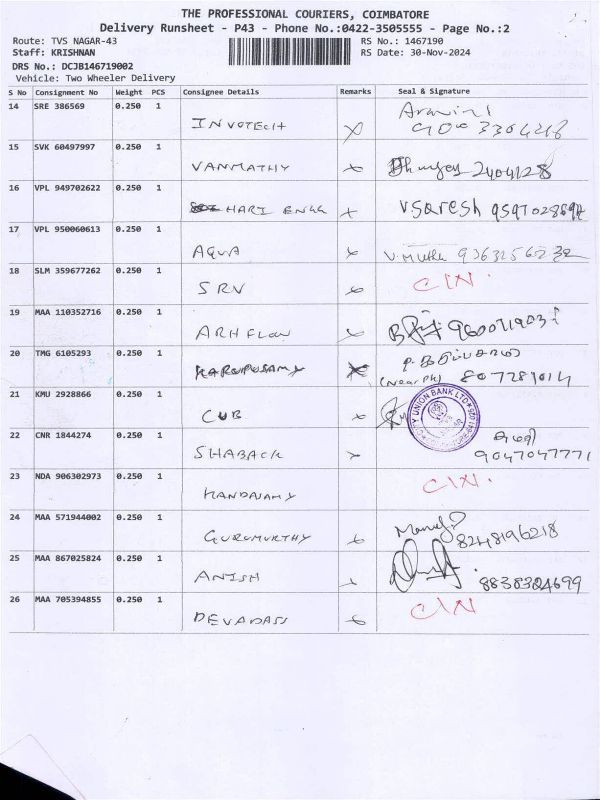 THE PROFESSIONAL COURIERS, COIMBATORE
Delivery Runsheet - P43 - Phone No.:0422-3505555 - Page No.:2
Route: TVS NAGAR-43 RS No.: 1467190
Staff: KRISHNAN RS Date: 30-Nov-2024
DRS No.: DCJB146719002
Vehicle: Two Wheeler Delivery
S No Consignment No Weight PCS Consignee Details Remarks Seal & Signature
14 SRE 386569 0.250 1
INVOTECH
15 SVK 60497997 0.250 1
VANMATHY
16 VPL 949702622 0.250 1
HARI ENGG VSaresh
17 VPL 950060613 0.250 1
AQUA
18 SLM 359677262 0.250 1
SRV CIN.
19 MAA 110352716 0.250 1
ARH FLOW
20 TMG 6105293 0.250 1
KARUPUSAMY (Near PH)
21 KMU 2928866 0.250 1
CUB UNION BANK LTD
22 CNR 1844274 0.250 1
SHABACK 9047047771
23 NDA 906302973 0.250 1
KANDAJAMY CIN.
24 MAA 571944002 0.250 1
GURUMURTHY 8248196218
25 MAA 867025824 0.250 1
ANISH 8838324699
26 MAA 705394855 0.250 1
DEVADASS CIN